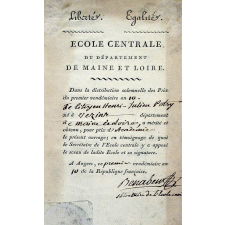 Liberté. Egalité.
ECOLE CENTRALE
DU DÉPARTEMENT
DE MAINE ET LOIRE.
Dans la distribution solemnelle des Prix
du premier vendémiaire an 10
le Citoyen Henri-Julien
né à département
de maine et loire, a mérité et
obtenu, pour prix d'Académie
le présent ouvrage; en témoignage de quoi
le Secrétaire de l'Ecole centrale y a apposé
le sceau de ladite Ecole et sa signature.
A Angers, ce premier vendémiaire an
10 de la République française.